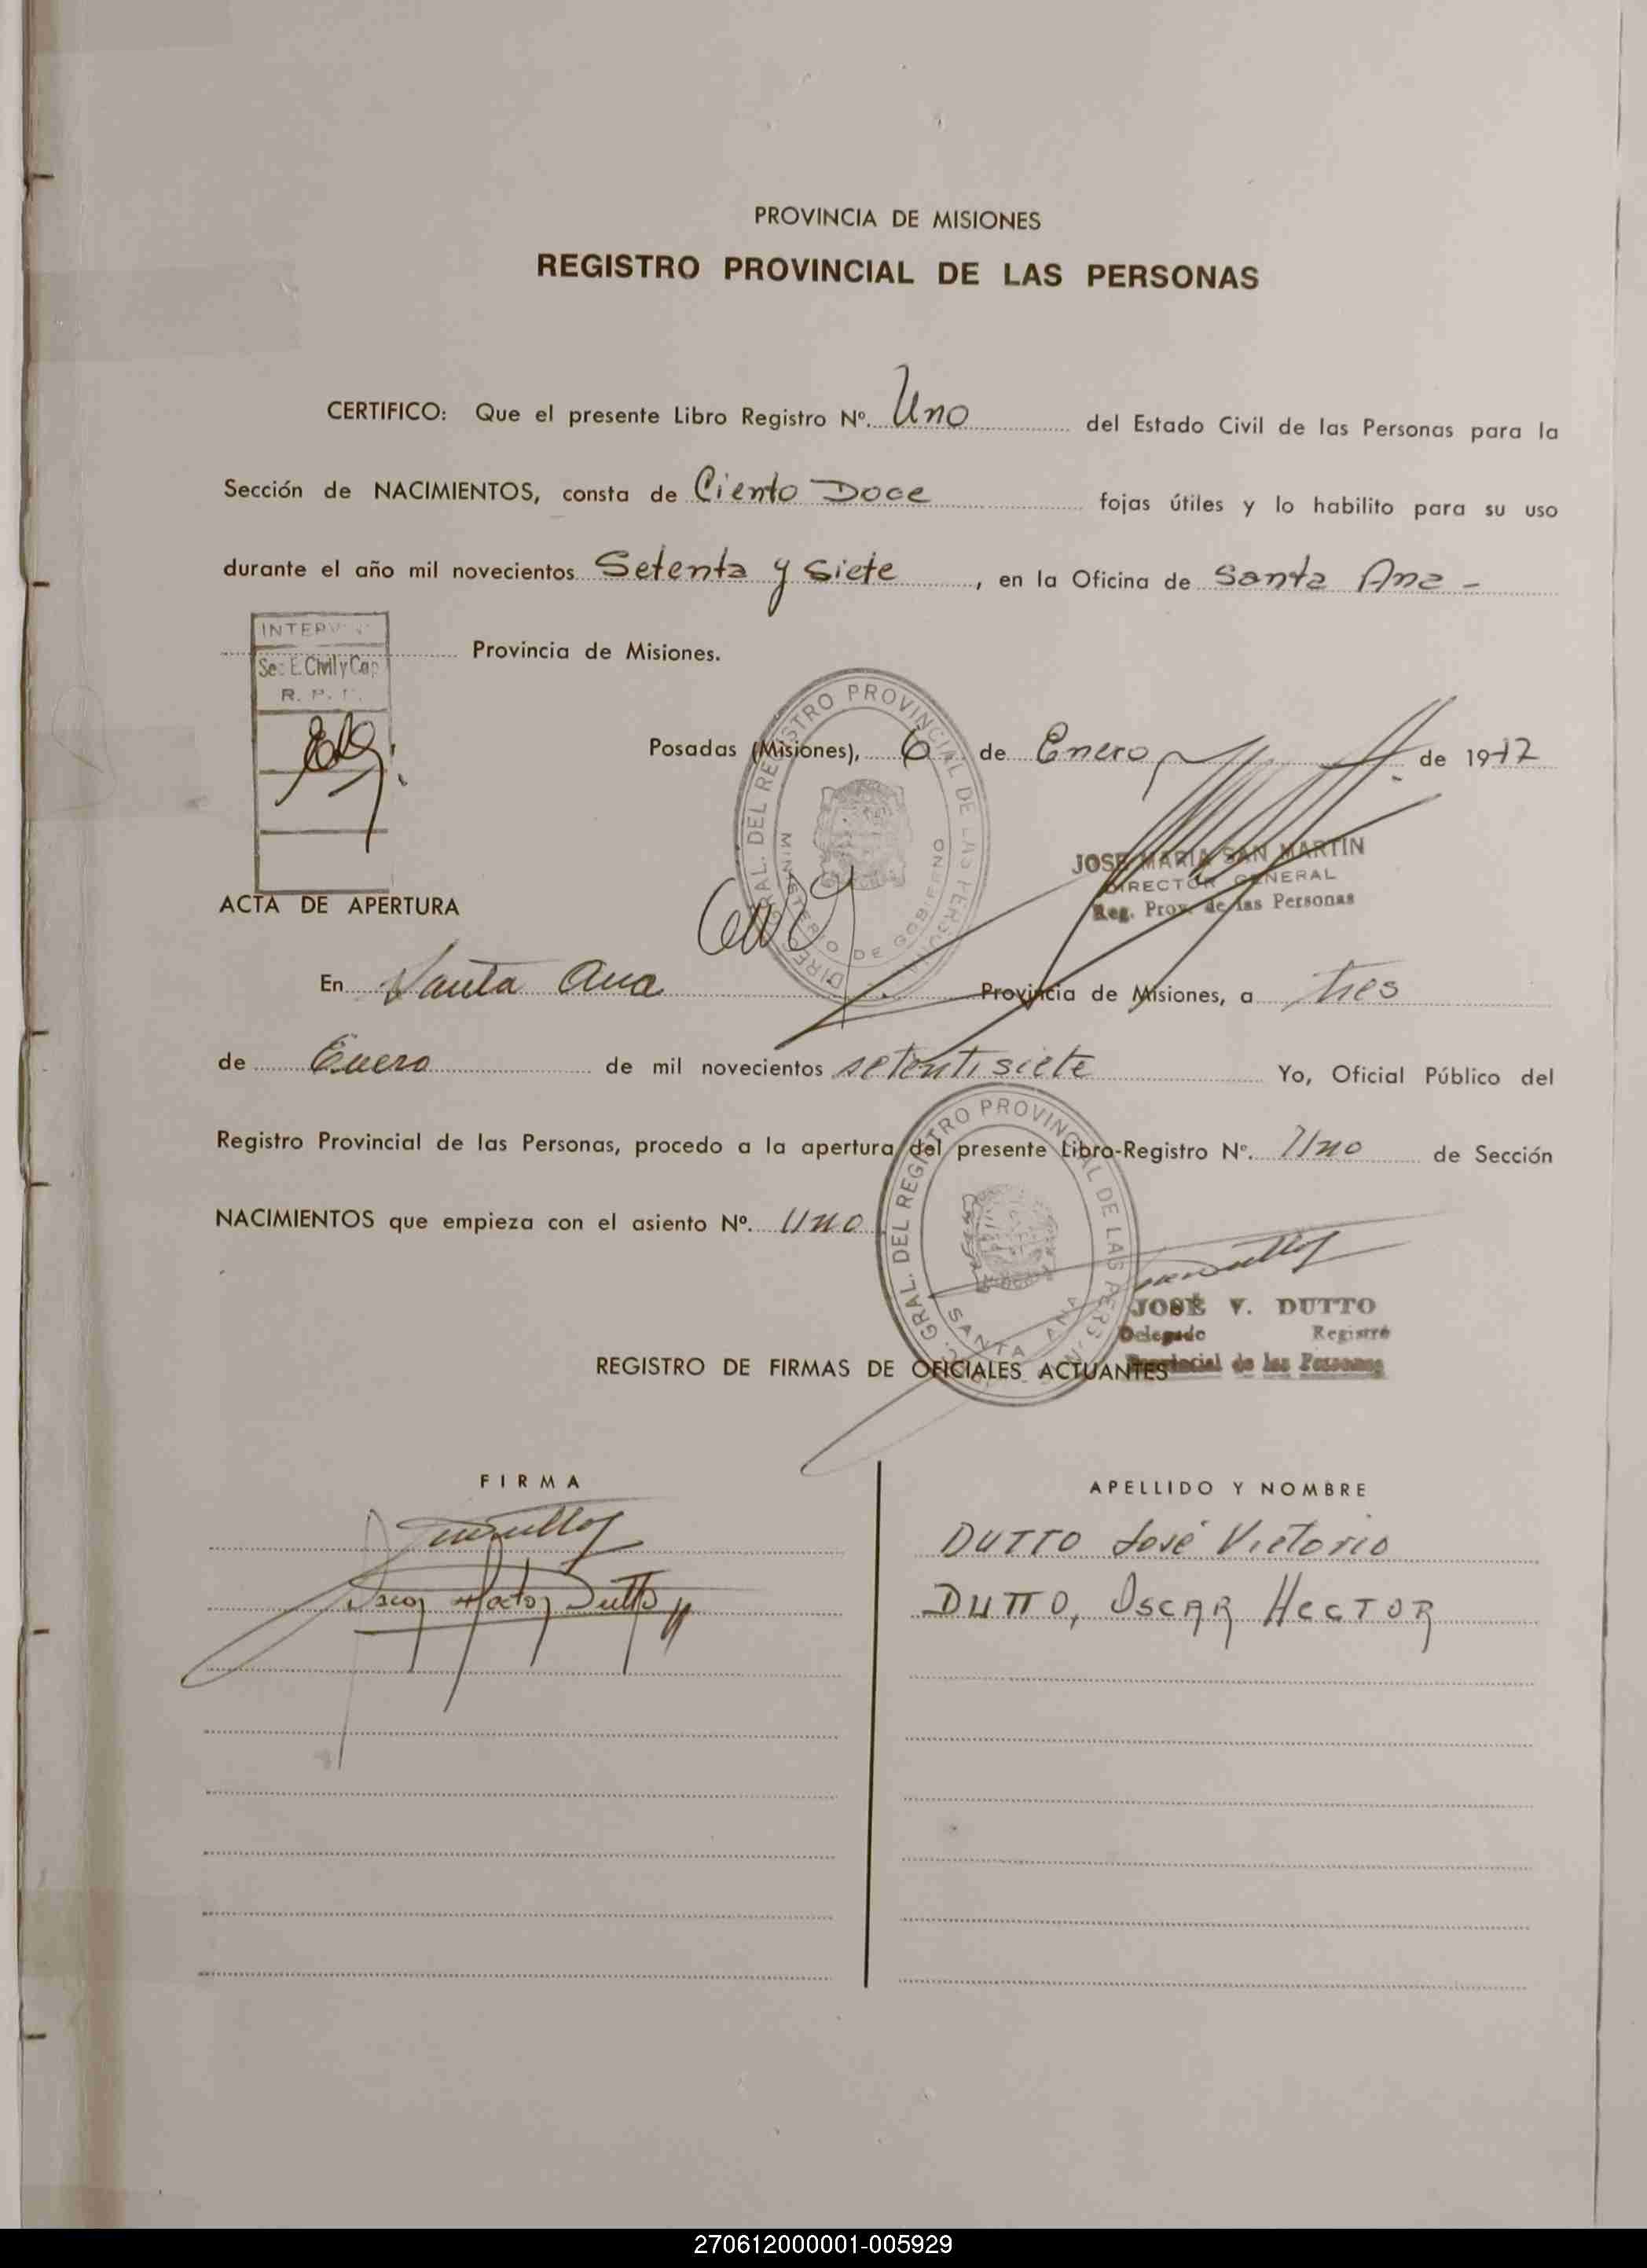 PROVINCIA DE MISIONES
REGISTRO PROVINCIAL DE LAS PERSONAS
CERTIFICO: Que el presente Libro Registro Nº. Uno del Estado Civil de las Personas para la
Sección de NACIMIENTOS, consta de Ciento Doce fojas útiles y lo habilito para su uso
durante el año mil novecientos Setenta y Siete, en la Oficina de Santa Ana -
INTERV
Sec. E. Civil y Cap
R. P.
Provincia de Misiones.
Posadas (Misiones), 6 de Enero de 1977
DIREC. GRAL. DEL REGISTRO PROVINCIAL DE LAS PERSONAS
MINISTERIO DE GOBIERNO
JOSE MARIA SAN MARTIN
DIRECTOR GENERAL
Reg. Prov. de las Personas
ACTA DE APERTURA
En Santa Ana Provincia de Misiones, a tres
de Enero de mil novecientos setentisiete Yo, Oficial Público del
Registro Provincial de las Personas, procedo a la apertura del presente Libro-Registro Nº. Uno de Sección
NACIMIENTOS que empieza con el asiento Nº. Uno
GRAL. DEL REGISTRO PROVINCIAL DE LAS PERS
SANTA ANA
JOSÉ V. DUTTO
Delegado Registro
Provincial de las Personas
REGISTRO DE FIRMAS DE OFICIALES ACTUANTES
FIRMA
APELLIDO Y NOMBRE
DUTTO José Victorio
Oscar Hector Dutto
DUTTO, OSCAR HECTOR
270612000001-005929